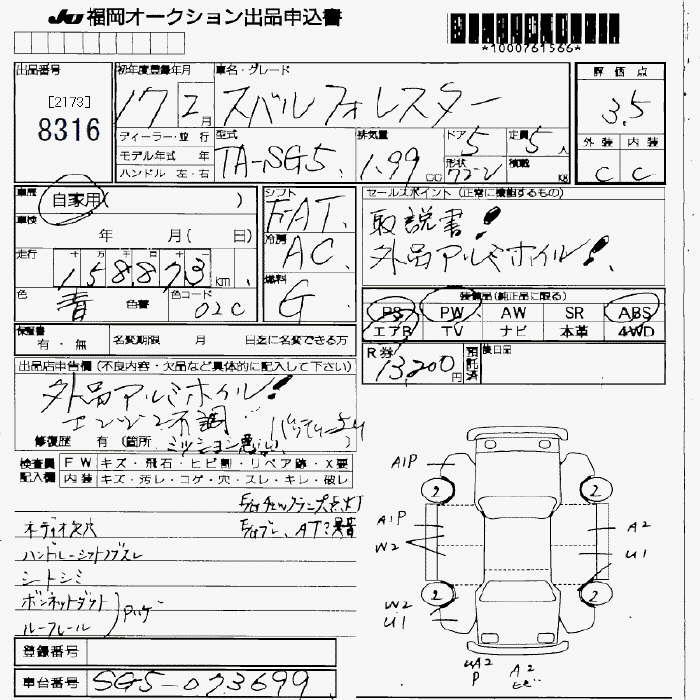 JU 福岡オークション出品申込書
*1000761566*
出品番号
[2173]
8316
初年度登録年月
17 2月
車名・グレード
スバルフォレスター
評価点
3.5
ディーラー・並行
モデル年式 年
ハンドル 左・右
型式
TA-SG5
排気量
1.99 CC
ドア 5
形状
ワゴン
定員 5人
積載 KG
外装 内装
C C
車歴
自家用( )
車検
年 月( 日)
走行
十 万 千 百 十
158,873 km
色
青 色替
色コード
02C
シフト
FAT
冷房
AC
燃料
G
セールスポイント(正常に機能するもの)
取説書!
外品アルミホイル!
装備品(純正品に限る)
PS PW AW SR ABS
エアB TV ナビ 本革 4WD
保証書
有・無
名変期限 月 日迄に名変できる方
R券
13,200円
預託済
後日品
出品店申告欄(不良内容・欠品など具体的に記入して下さい)
外品アルミホイル!
エンジン不調 バッテリー上り
修復歴 有(箇所 ミッション悪い )
検査員記入欄
FW キズ・飛石・ヒビ割・リペア跡・X要
内装 キズ・汚レ・コゲ・穴・スレ・キレ・破レ
E/gチェックランプ点灯
オーディオ欠穴
E/gブレ、AT異音
ハンドルシフトノブスレ
シートシミ
ボンネットダクト
ルーフレール
登録番号
車台番号
SG5-073699
A1P
2 2
A1P
W2
A2
U1
2 2
W2
U1
UA2
P
A2